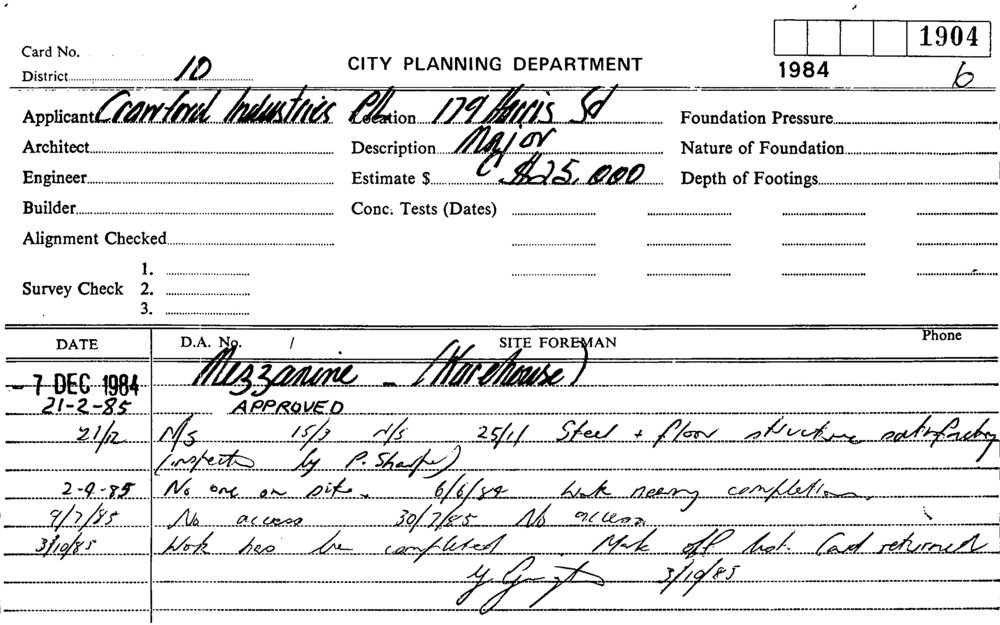 1904
Card No.
District 10
CITY PLANNING DEPARTMENT
1984
6
Applicant Crawford Industries P/L Location 179 Harris Sd Foundation Pressure
Architect Description Major Nature of Foundation
Engineer Estimate $ $25,000 Depth of Footings
Builder Conc. Tests (Dates)
Alignment Checked
1.
Survey Check 2.
3.
DATE D.A. No. / SITE FOREMAN Phone
- 7 DEC 1984 Mezzanine - (Warehouse)
21-2-85 APPROVED
21/12 N/S 15/3 N/S 25/11 Steel + floor structure satisfactory
(inspected by P. Sharpe)
2-4-85 No one on site. 6/6/84 Work nearing completion.
9/7/85 No access 30/7/85 No access
3/10/85 Work has be completed. Mark off list. Card returned
3/10/85